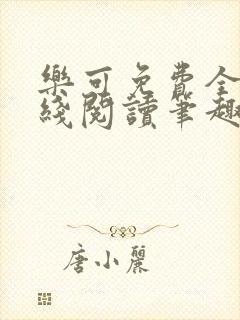 樂可免費全
綫閱讀筆趣
唐小麗